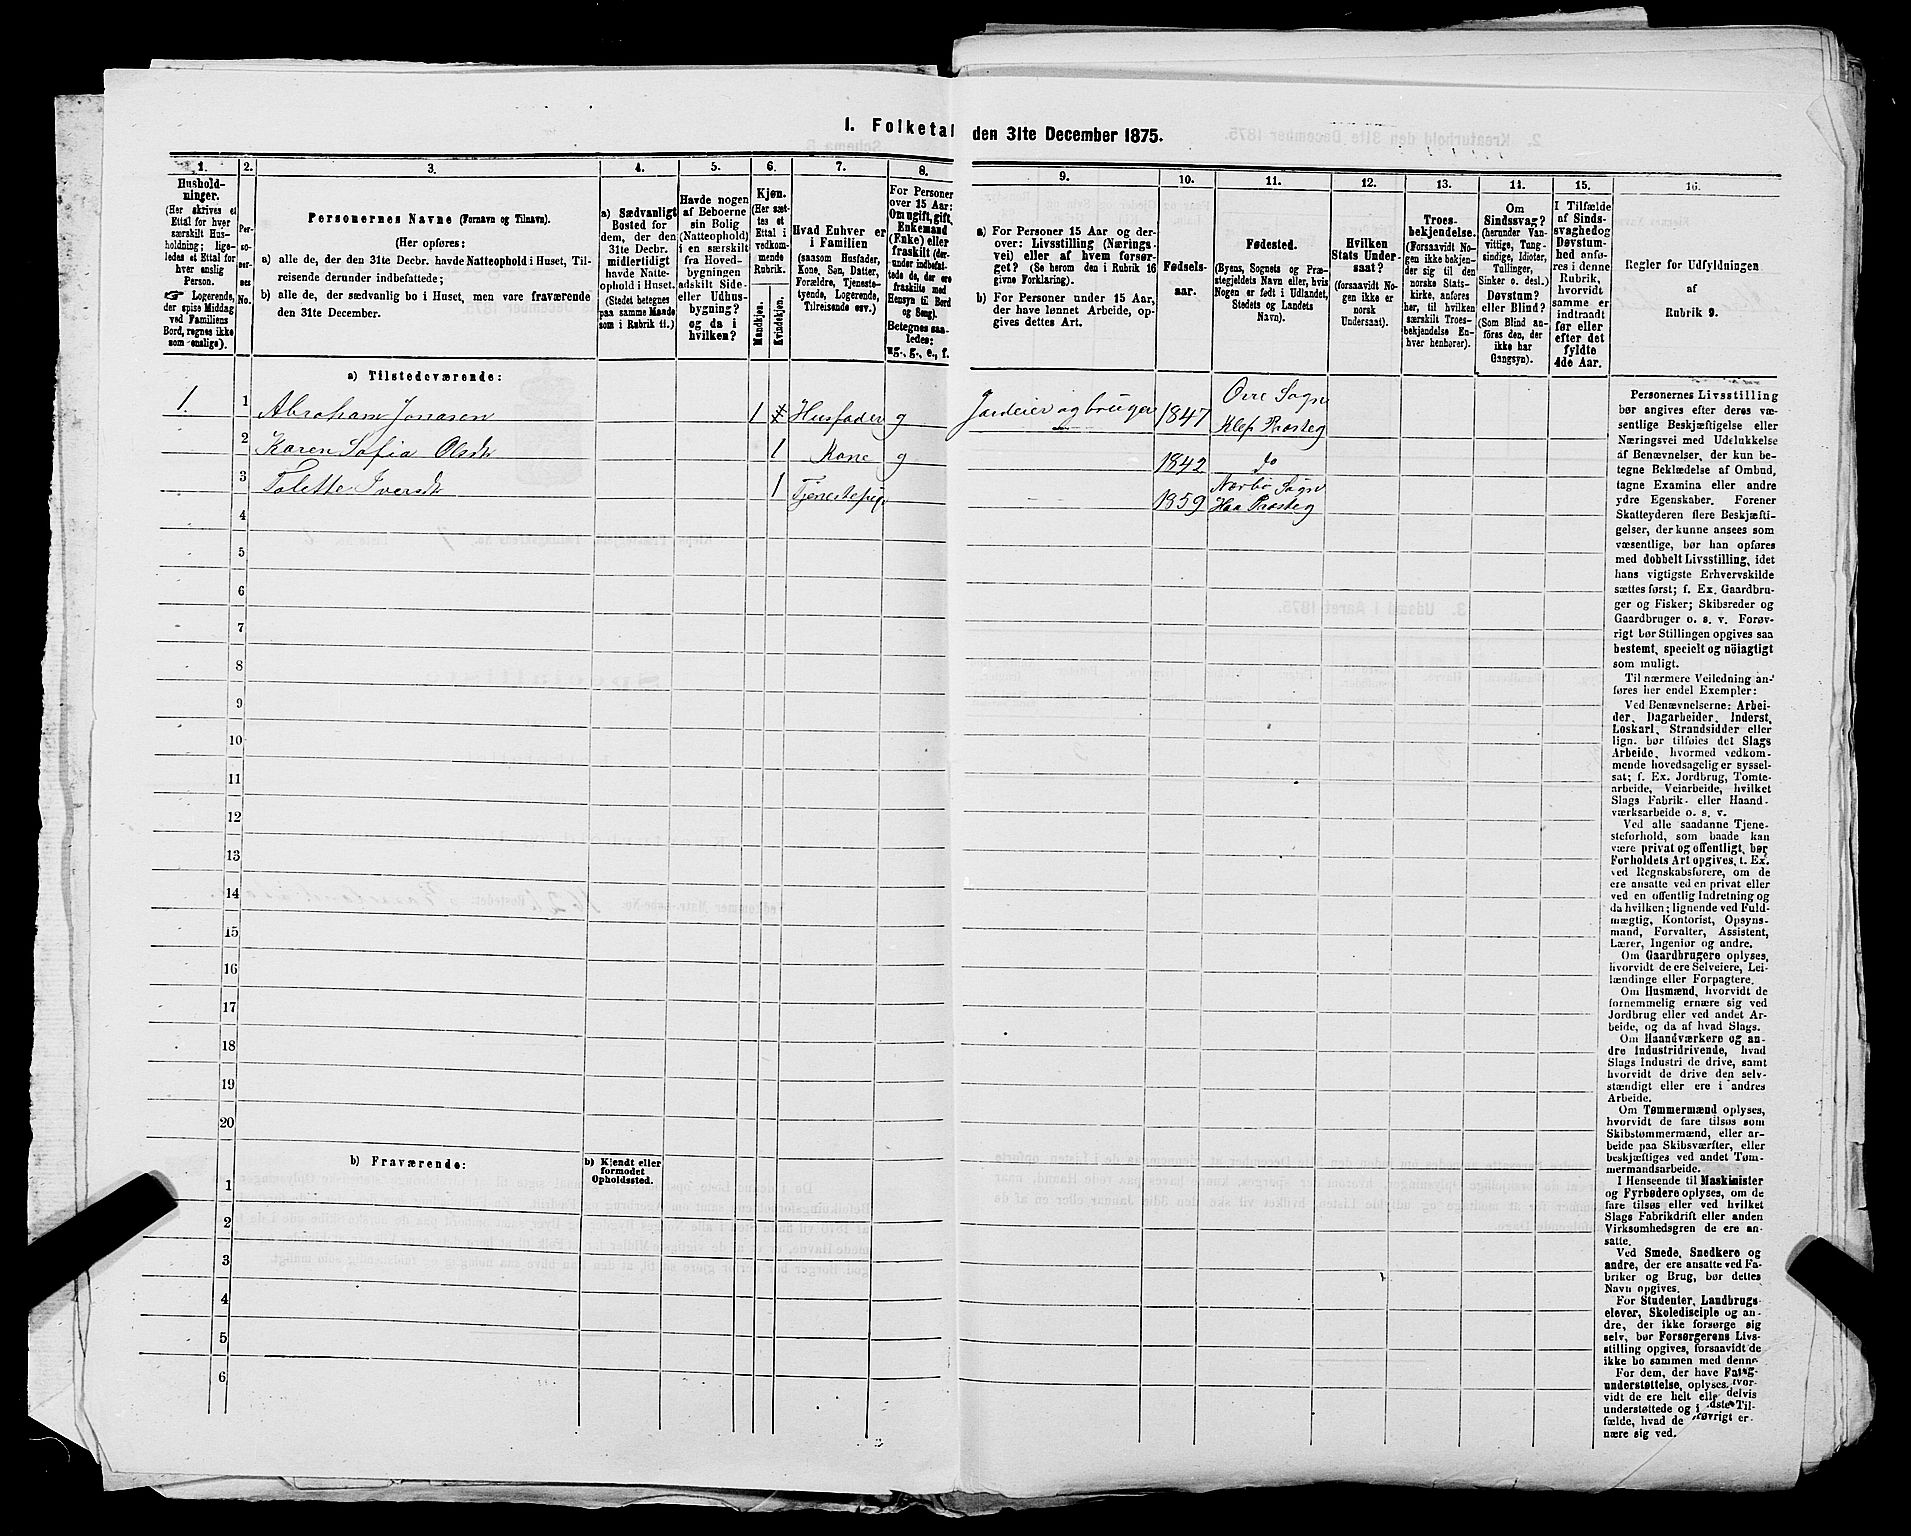 I. Folketal den 31te December 1875.
1.
Hushold-
ninger.
(Her skrives et
Ettal for hver
særskilt Hus-
holdning; lige-
ledes et Ettal for
hver enslig
Person.
Logerende,
der spise Middag
ved Familiens
Bord, regnes ikke
som enslige).
2.
Per-
so-
ner-
nes
No.
3.
Personernes Navne (Fornavn og Tilnavn).
(Her opføres:
a) alle de, der den 31te Decbr. havde Natteophold i Huset, Til-
reisende derunder indbefattede;
b) alle de, der sædvanlig bo i Huset, men vare fraværende
den 31te December.
4.
a) Sædvanligt
Bosted for
dem, der den
31te Decbr.
midlertidigt
havde Natte-
ophold i Huset.
(Stedet betegnes
paa samme Maade
som i Rubrik 11.)
5.
Havde nogen
af Beboerne
sin Bolig
(Natteophold)
i en særskilt
fra Hoved-
bygningen
adskilt Side-
eller Udhus-
bygning?
og da i
hvilken?
6.
Kjøn.
(Her sæt-
tes et
Ettal i
vedkom-
mende
Rubrik.
Mandkjøn.
Kvindekjøn.
7.
Hvad Enhver er
i Familien
(saasom Husfader,
Kone, Søn, Datter,
Forældre, Tjeneste-
tyende, Logerende,
Tilreisende osv.)
8.
For Personer
over 15 Aar:
Om ugift, gift,
Enkemand
(Enke) eller
fraskilt (der-
under indbefat-
tede de, der ere
fraskilte med
Hensyn til Bord
og Seng).
Betegnes saa-
ledes:
ug., g., e., f.
9.
a) For Personer 15 Aar og der-
over: Livsstilling (Nærings-
vei) eller af hvem forsør-
get? (Se herom den i Rubrik 16
givne Forklaring).
b) For Personer under 15 Aar,
der have lønnet Arbeide, op-
gives dettes Art.
10.
Fødsels-
aar.
11.
Fødested.
(Byens, Sognets og Præ-
stegjeldets Navn eller, hvis
Nogen er født i Udlandet,
Stedets og Landets
Navn).
12.
Hvilken
Stats Under-
saat?
(forsaavidt No-
gen ikke er
norsk
Undersaat).
13.
Troes-
bekjendelse.
(Forsaavidt No-
gen ikke bekjen-
der sig til den
norske Stats-
kirke, anføres
her, til hvilken
særskilt Troes-
bekjendelse En-
hver henhører).
14.
Om
Sindssvag?
(herunder Van-
vittige, Tung-
sindige, Idioter,
Tullinger,
Sinker o. desl.)
Døvstum?
eller Blind?
(Som Blind an-
føres den, der
ikke har
Gangsyn).
15.
I Tilfælde
af Sinds-
svaghed og
Døvstum-
hed anfø-
res i denne
Rubrik,
hvorvidt
samme er
indtraadt
før eller
efter det
fyldte
4de Aar.
16.
Regler for Udfyldningen
af
Rubrik 9.
a) Tilstedeværende:
1. 1 Abraham Jonasen 1 Husfader g Jordeier og bruger 1847 Orre Sogn
Klep Præsteg
2 Karen Sofia Olsdtr 1 Kone g 1842 do
3 Tolette Iversdtr 1 Tjenestepige 1859 Nærbø Sogn
Haa Præsteg
4
5
6
7
8
9
10
11
12
13
14
15
16
17
18
19
20
b) Fraværende:
b) Kjendt eller
formodet
Opholdssted.
1
2
3
4
5
6
Personernes Livsstilling
bør angives efter deres væ-
sentlige Beskjæftigelse eller
Næringsvei med Udelukkelse
af Benævnelser, der kun be-
tegne Beklædelse af Ombud,
tagne Examina eller andre
ydre Egenskaber. Forener
Skatteyderen flere Beskjæfti-
gelser, der kunne ansees som
væsentlige, bør han opføres
med dobbelt Livsstilling, idet
hans vigtigste Erhvervskilde
sættes først; f. Ex. Gaardbru-
ger og Fisker; Skibsreder og
Gaardbruger o. s. v. Forøv-
rigt bør Stillingen opgives saa
bestemt, specielt og nöiagtigt
som muligt.
Til nærmere Veiledning an-
føres her endel Exempler:
Ved Benævnelserne: Arbei-
der, Dagarbeider, Inderst,
Løskarl, Strandsidder eller
lign. bør tilføies det Slags
Arbeide, hvormed vedkom-
mende hovedsagelig er syssel-
sat; f. Ex. Jordbrug, Tomte-
arbeide, Veiarbeide, hvilket
Slags Fabrik- eller Haand-
værksarbeide o. s. v.
Ved alle saadanne Tjene-
steforhold, som baade kan
være privat og offentligt, bør
Forholdets Art opgives, t. Ex.
ved Regnskabsførere, om de
ere ansatte ved en privat eller
ved en offentlig Indretning og
da hvilken; lignende ved Fuld-
mægtig, Kontorist, Opsyns-
mand, Forvalter, Assistent,
Lærer, Ingeniør og andre.
Om Gaardbrugere oplyses,
hvorvidt de ere Selveiere, Lei-
lændinge eller Forpagtere.
Om Husmænd, hvorvidt de
fornemmelig ernære sig ved
Jordbrug eller ved andet Ar-
beide, og da af hvad Slags.
Om Haandværkere og an-
dre Industridrivende, hvad
Slags Industri de drive, samt
hvorvidt de drive den selv-
stændigt eller ere i andres
Arbeide.
Om Tømmermænd oplyses,
hvorvidt de fare tilsøs som
Skibstømmermænd, eller ar-
beide paa Skibsværfter, eller
beskjæftiges ved andet Tøm-
mermandsarbeide.
I Henseende til Maskinister
og Fyrbødere oplyses, om de
fare tilsøs eller ved hvilket
Slags Fabrikdrift eller anden
Virksomhedsgren de ere an-
satte.
Ved Smede, Snedkere og
andre, der ere ansatte ved Fa-
briker og Brug, bør dettes
Navn opgives.
For Studenter, Landbrugs-
elever, Skoledisciple og an-
dre, der ikke forsørge sig
selv, bør Forsørgerens Livs-
stilling opgives, forsaavidt de
ikke bo sammen med denne.
For dem, der have Fattig-
understøttelse, oplyses, hvor-
vidt de ere helt eller delvis
understøttede og i sidste Til-
fælde, hvad de forøvrigt er-
nære sig ved.